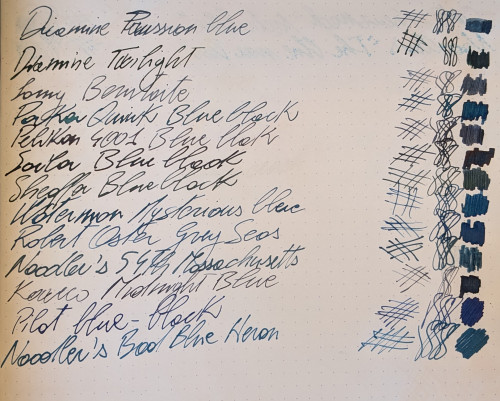 Diamine Prussian blue
Diamine Twilight
Lamy Benitoite
Parker Quink Blue black
Pelikan 4001 Blue black
Sailor Blue black
Sheaffer Blue black
Waterman Mysterious blue
Robert Oster Grey Seas
Noodler's 54th Massachusetts
Kaweco Midnight Blue
Pilot blue-black
Noodler's Bad Blue Heron